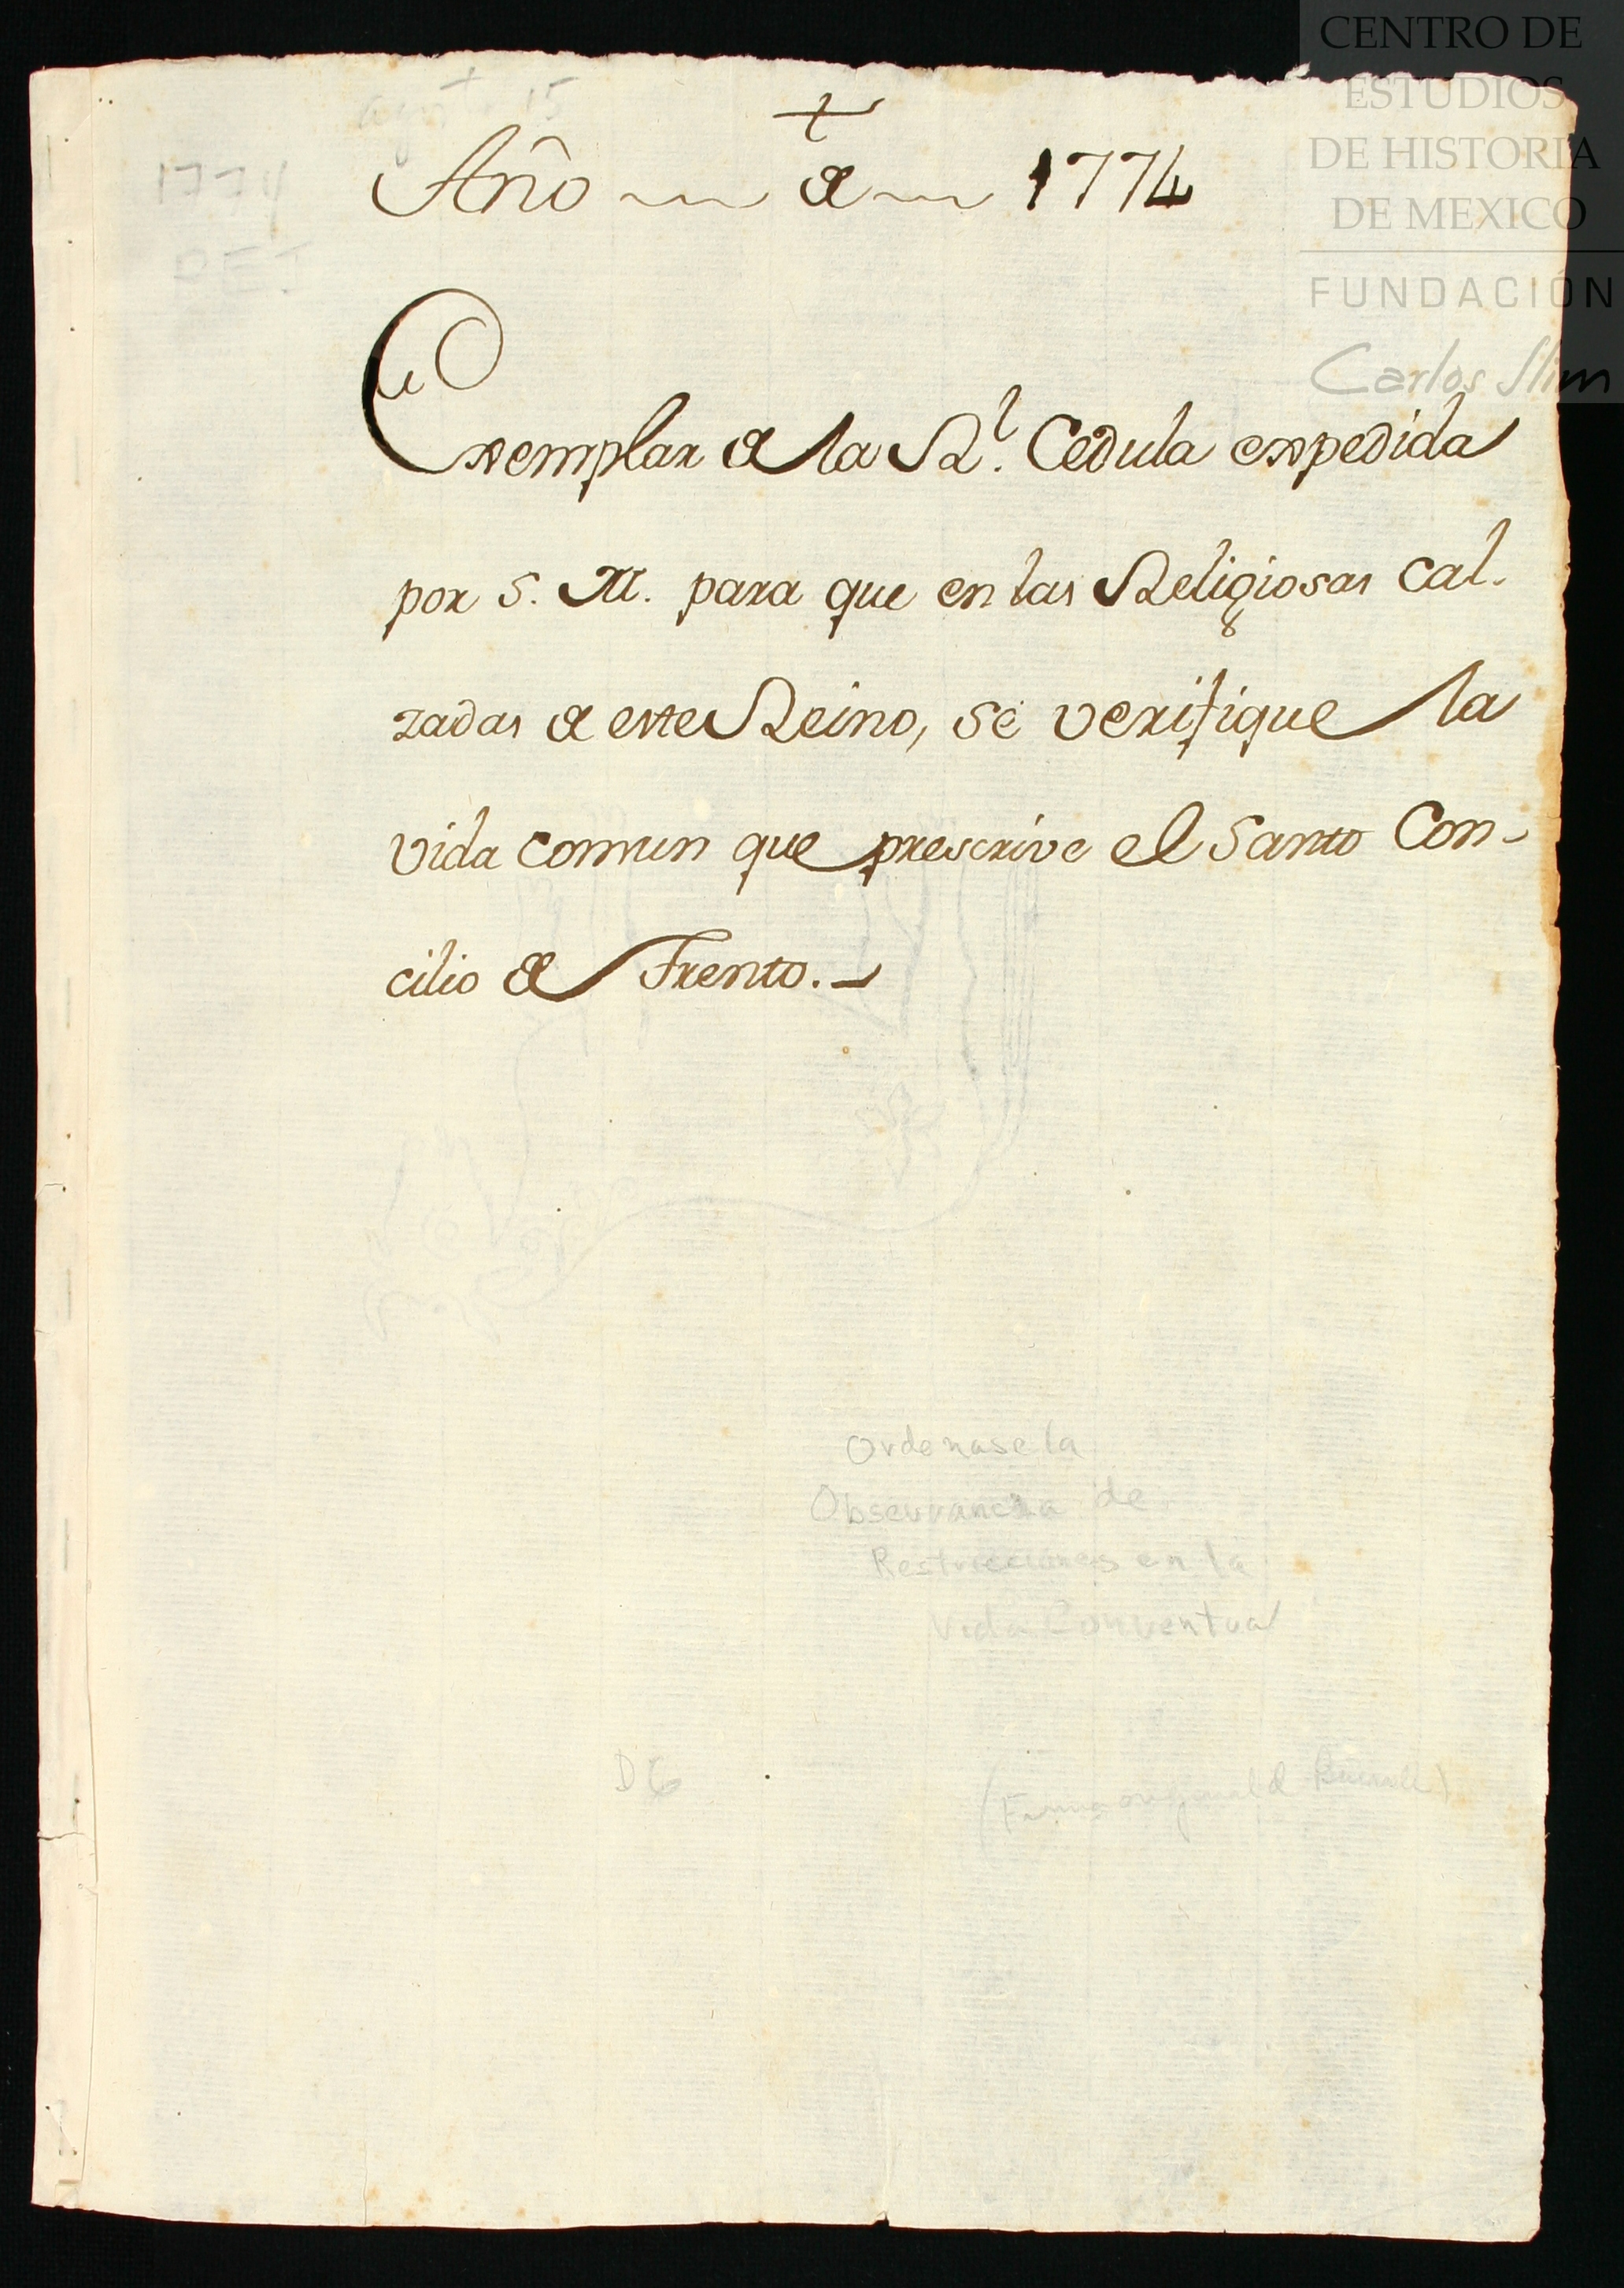 CENTRO DE
ESTUDIOS
DE HISTORIA
DE MEXICO
FUNDACIÓN
Carlos Slim
15
1774
+
Año de 1774
Exemplar de la Rl. Cedula expedida
por S. M. para que en las Religiosas Cal-
zadas de este Reino, se verifique la
vida comun que prescrive el Santo Con-
cilio de Trento.
Ordenase la
Observancia de
Restricciones en la
Vida Conventual
D6